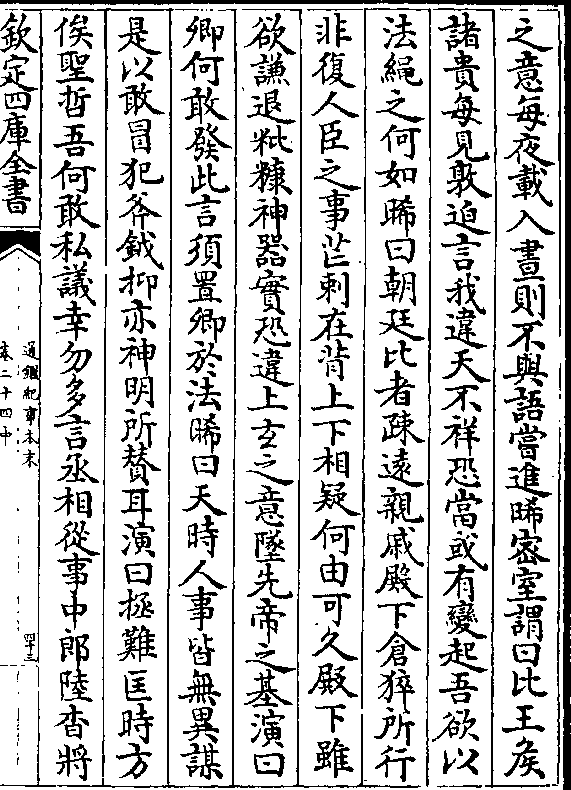 之意每夜載入晝則不與語嘗進晞密室謂曰比王矦
諸貴每見敦迫言我違天不祥恐當或有變起吾欲以
法繩之何如晞曰朝廷比者疎遠親戚殿下倉猝所行
非復人臣之事芒刺在背上下相疑何由可久殿下雖
欲謙退粃糠神器實恐違上玄之意墜先帝之基演曰
卿何敢發此言須置卿於法晞曰天時人事皆無異謀
是以敢冒犯斧鉞抑亦神明所賛耳演曰拯難匡時方
俟聖哲吾何敢私議幸勿多言丞相從事中郎陸杳將
欽定四庫全書
通鑑紀事本末
卷二十四中
四十三